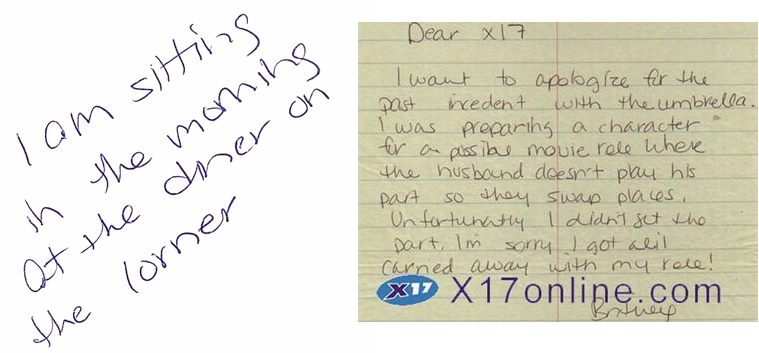 I am sitting
in the morning
at the diner on
the corner
Dear X17
I want to apologize for the
past incedent with the umbrella.
I was preparing a character
for a possible movie role where
the husband doesn't play his
part so they swap places.
Unfortunatly I didn't get the
part. I'm sorry I got alil
carried away with my role!
X17 X17online.com
Britney